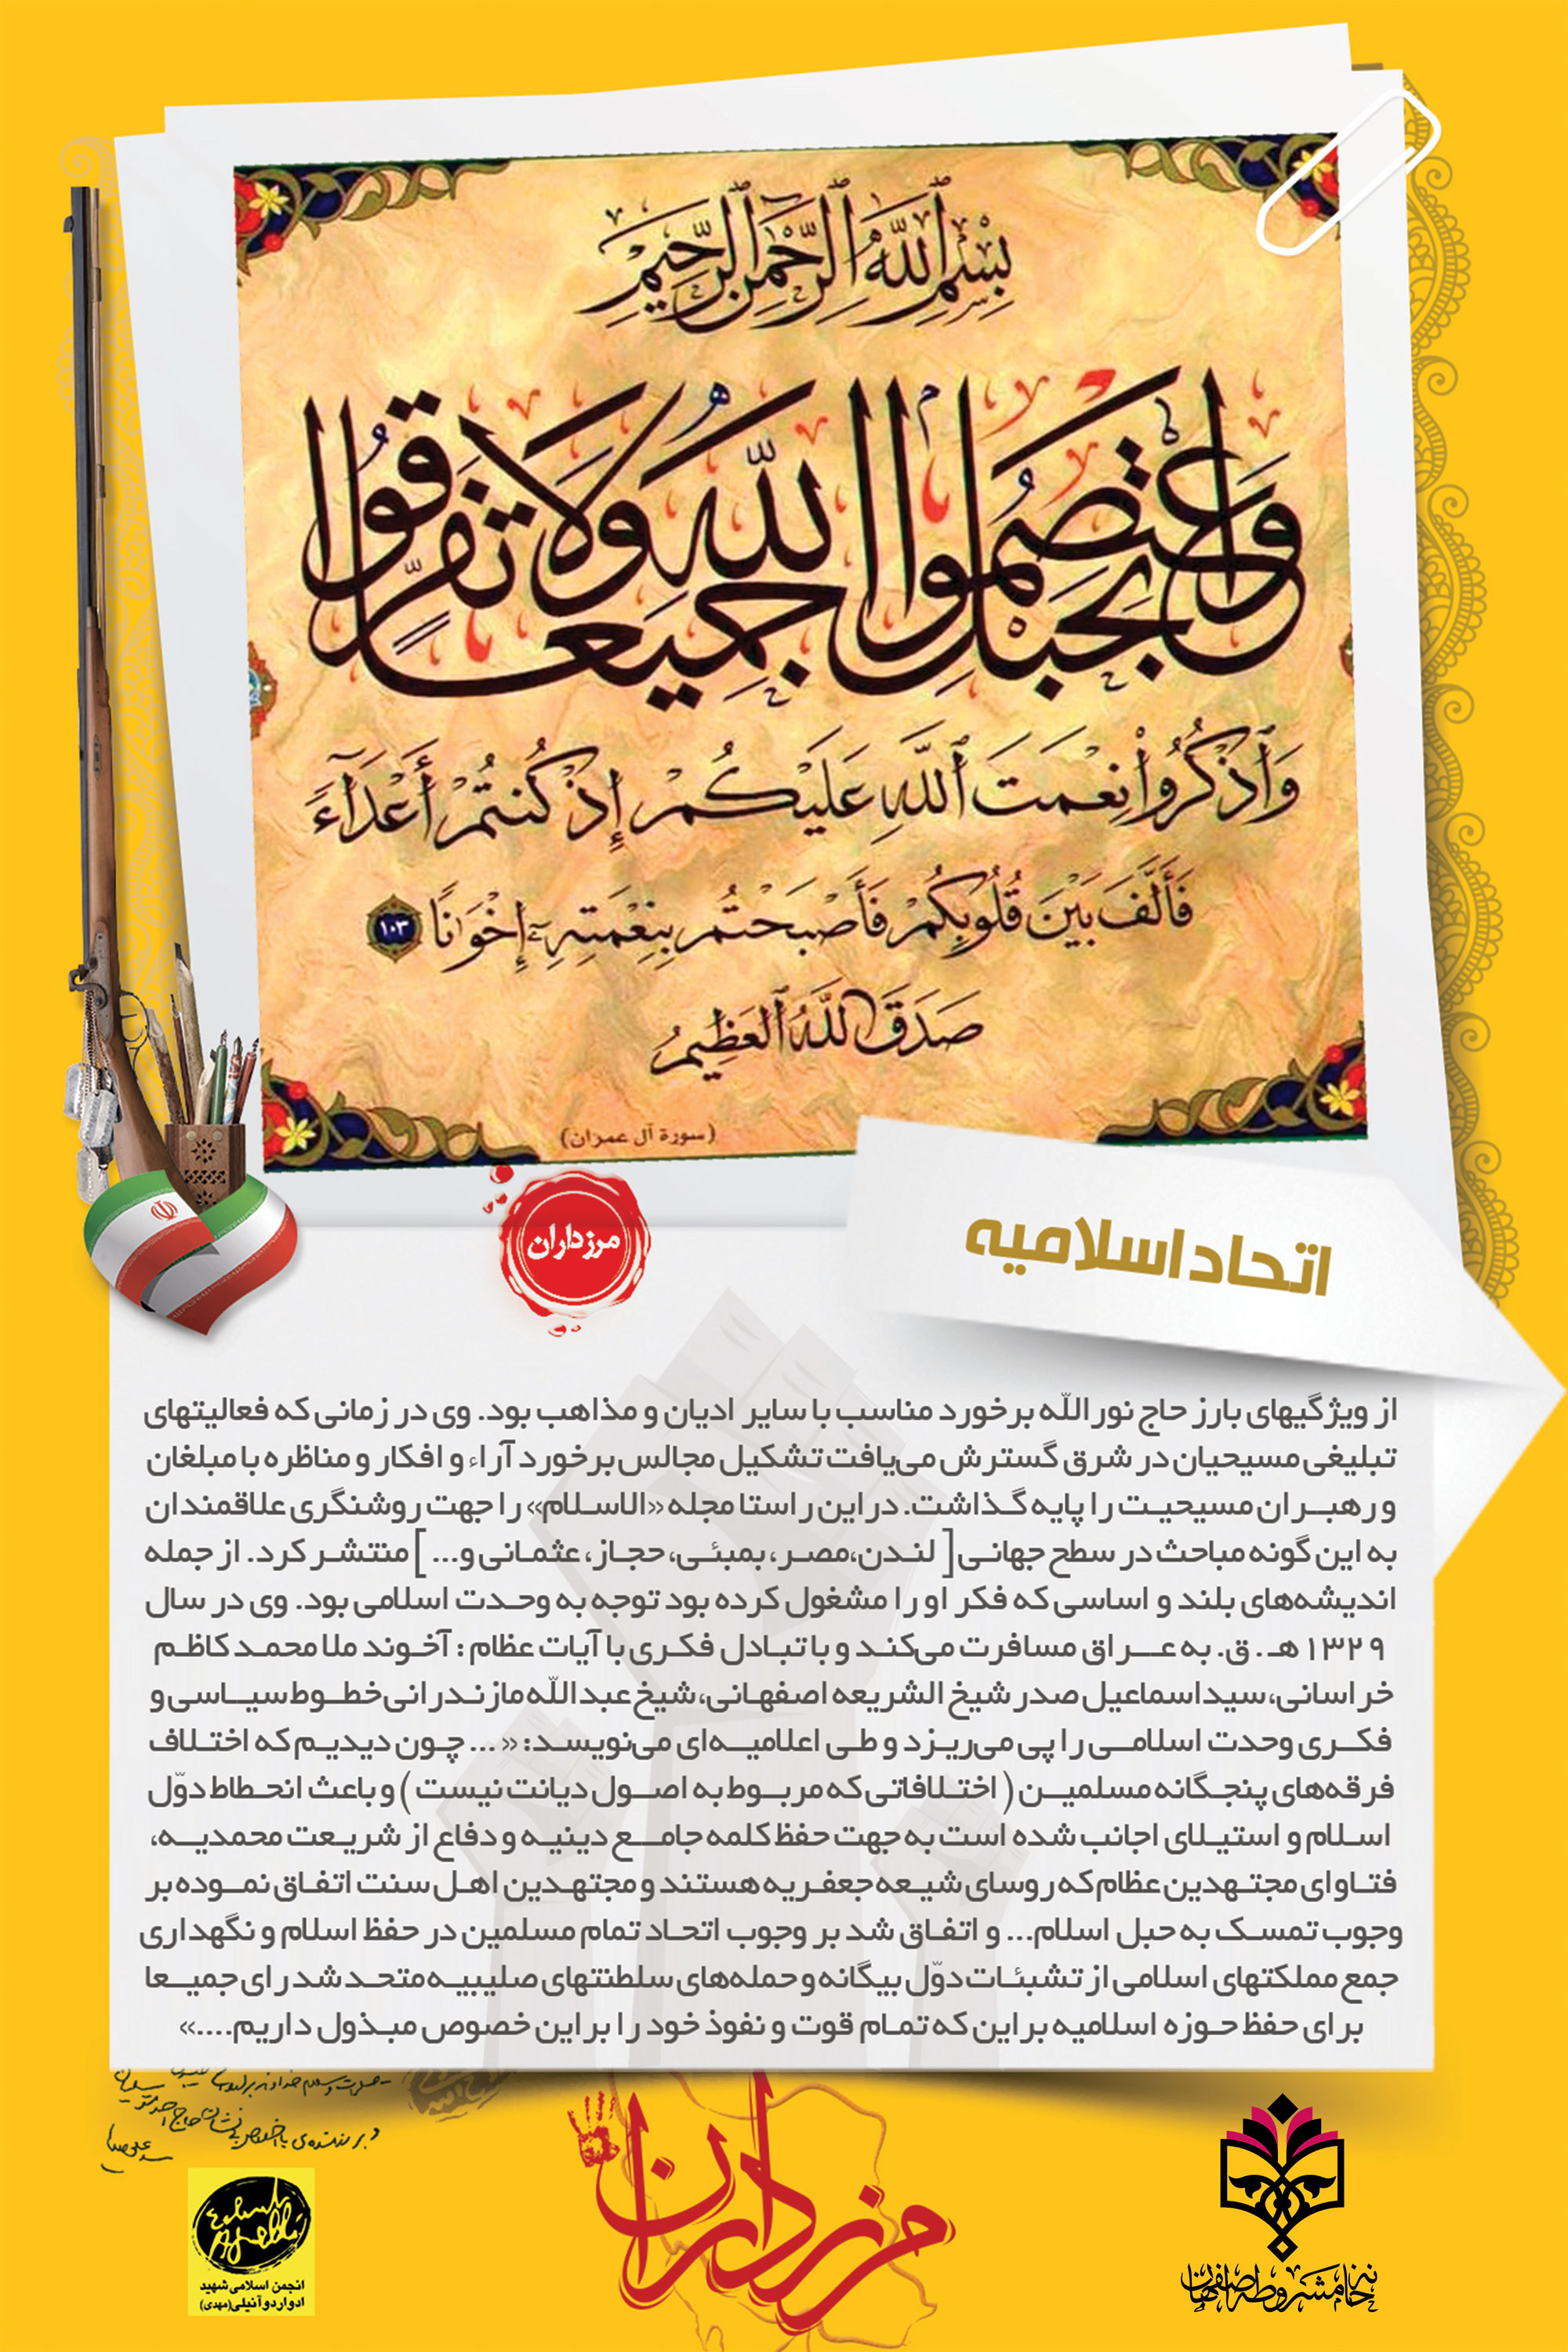 بِسْمِ ٱللَّهِ ٱلرَّحْمَٰنِ ٱلرَّحِيمِ
وَاعْتَصِمُوا بِحَبْلِ اللَّهِ جَمِيعًا وَلَا تَفَرَّقُوا
وَٱذْكُرُوا۟ نِعْمَتَ ٱللَّهِ عَلَيْكُمْ إِذْ كُنتُمْ أَعْدَآءً
فَأَلَّفَ بَيْنَ قُلُوبِكُمْ فَأَصْبَحْتُم بِنِعْمَتِهِۦٓ إِخْوَٰنًا ١٠٣
صَدَقَ اللَّهُ ٱلْعَظِيمُ
(سورة آل عمران)
مرزداران
اتحاد اسلامیه
از ویژگیهای بارز حاج نور اللّه برخورد مناسب با سایر ادیان و مذاهب بود. وی در زمانی که فعالیتهای
تبلیغی مسیحیان در شرق گسترش می‌یافت تشکیل مجالس برخورد آراء و افکار و مناظره با مبلغان
و رهبــران مسیحیـت را پایه گـذاشت. در این راستا مجله «الاسـلام» را جهت روشنگری علاقمندان
به این گونه مباحث در سطح جهانـی[ لنـدن،مصـر، بمبئـی، حجـاز، عثمـانی و... ] منتشـر کرد. از جمله
اندیشه‌های بلند و اساسی که فکر او را مشغول کرده بود توجه به وحـدت اسلامی بود. وی در سال
۱۳۲۹ هـ . ق. به عـــراق مسافرت می‌کنـد و با تبـادل فکـری با آیات عظام : آخـوند ملا محمـد کاظـم
خراسانی، سیداسماعیل صدر شیخ الشریعه اصفهـانی، شیخ عبد اللّه مازنـدرانی خطـوط سیــاسی و
فکــری وحدت اسلامــی را پی می‌ریـزد و طـی اعلامیــه‌ای می‌نویسـد: « ... چـون دیدیـم که اختـلاف
فرقه‌های پنجـگانه مسلمیــن ( اختـلافاتی که مربــوط به اصــول دیانت نیست ) و باعث انحـطاط دوّل
اسـلام و استیـلای اجانب شده است به جهت حفظ کلمه جامــع دینیـه و دفاع از شریـعت محمدیــه،
فتـاوای مجتـهدین عظام که روسای شیـعه جعفـریه هستند و مجتهـدین اهـل سنت اتفـاق نمــوده بر
وجوب تمسـک به حبل اسلام... و اتفـاق شد بر وجوب اتحـاد تمام مسلمین در حفظ اسلام و نگهداری
جمع مملکتهای اسلامی از تشبئـات دوّل بیگانه و حمله‌های سلطنتهای صلیبیـه متحـد شد رای جمیــعا
برای حفظ حـوزه اسلامیه بر این که تمـام قوت و نفوذ خود را بر این خصوص مبـذول داریم....»
انجمن اسلامی شهید
ادواردو آنیلی(مهدی)
مرزداران
خانه مشروطه اصفهان